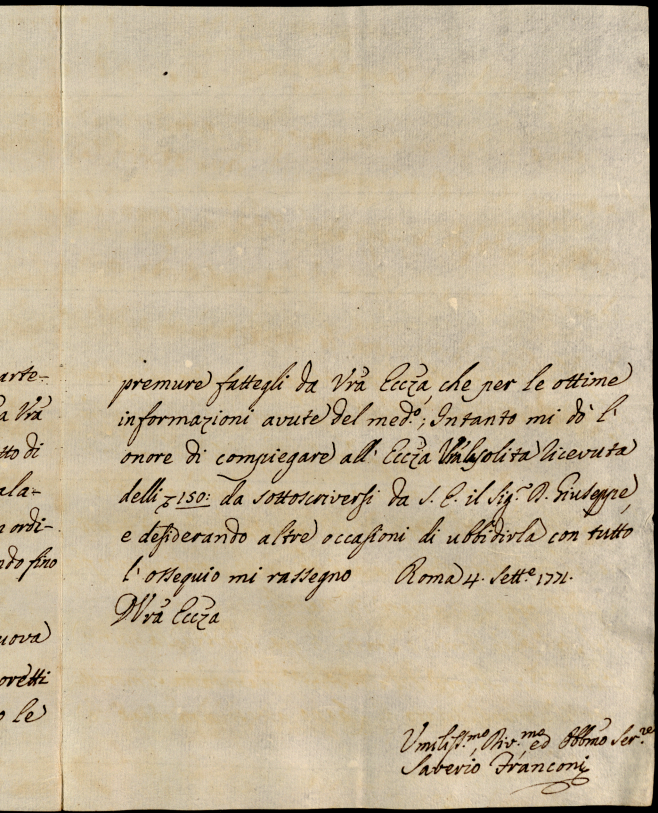 arte-
a Vrã
tto di
ala-
n ordi-
ndo fino
uova
oretti
o le
premure fattegli da Vrã Eccza che per le ottime
informazioni avute del med.º; Intanto mi dò l'
onore di compiegare all' Eccza Vrã la solita ricevuta
delli 150: da sottoscriversi da S. E. il Sig.r D. Giuseppe,
e desiderando altre occasioni di ubbidirla con tutto
l'ossequio mi rassegno Roma 4. Sett.e 1771.
D Vrã Eccza
Umiliss.mo, Div.mo ed Obbmo Ser.re
Saverio Franconi